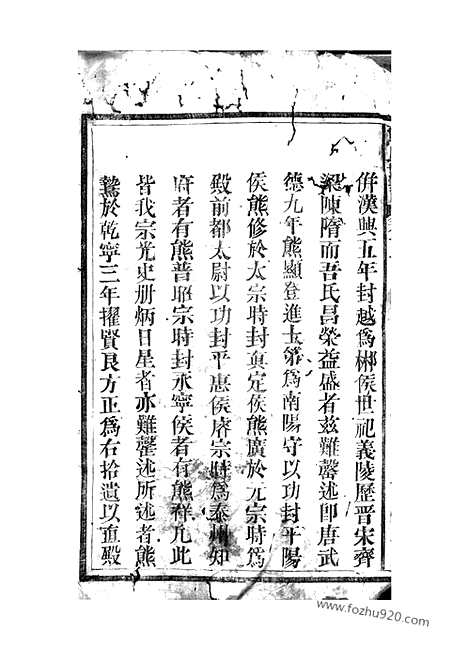 併漢興五年封越為郴侯世祀義陵歷晉宋齊
梁陳隋而吾氏昌榮益盛者茲難罄述即唐武
德九年熊顯登進士第為南陽守以功封平陽
侯熊修於太宗時封真定侯熊廣於元宗時為
殿前都太尉以功封平惠侯睿宗時為泰州知
府者有熊普耶宗時封永寧侯者有熊祥凡此
皆我宗光史册炳日星者亦難罄述所述者熊
於乾寧三年擢賢良方正為右拾遺以直殿
www.fozhu920.com